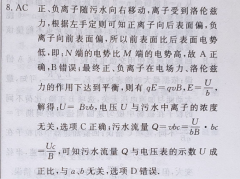 8. AC 正、负离子随污水向右移动,离子受到洛伦兹
力,根据左手定则可知正离子向后表面偏,负
离子向前表面偏,所以前表面比后表面电势
低,即,N端的电势比M端的电势高,故A正
确,B错误;最终正、负离子在电场力、洛伦兹
力的作用下达到平衡,则有 qE=qvB,E=U/b,
解得,U=Bvb,电压U与污水中离子的浓度
无关,选项C正确;污水流量 Q=vbc=U/bB·bc
=Uc/B,可知污水流量Q与电压表的示数U成
正比,与a、b无关,选项D错误.